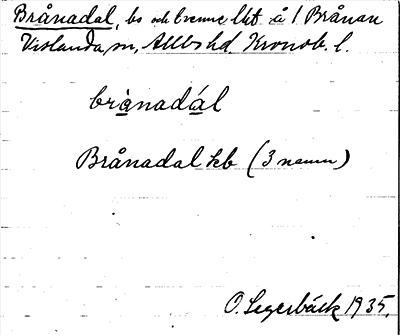 Brånadal, bs och tvenne lht å / Brånan
Vislanda sn, Allbo hd. Kronob. l.
brånadál
Brånadal kb (3 namn)
O. Segerbäck 1935.